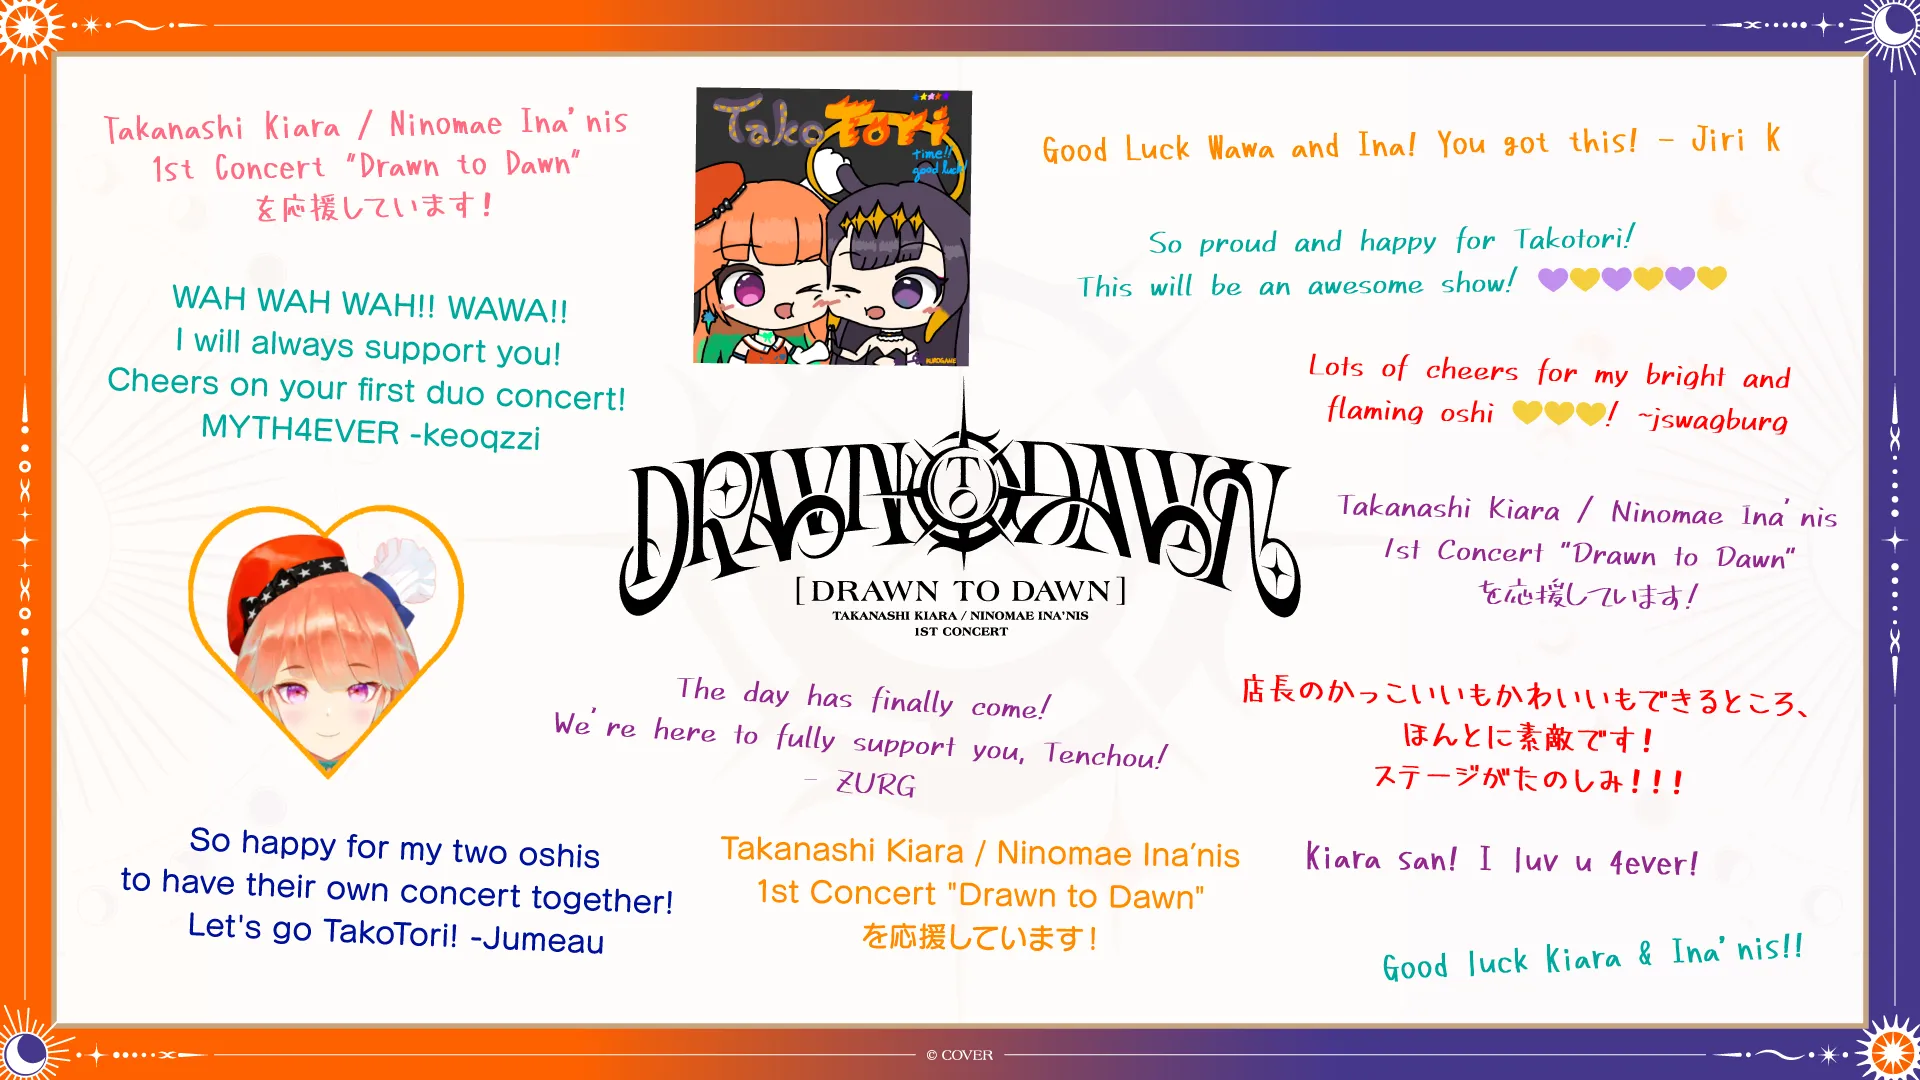 Takanashi Kiara / Ninomae Ina'nis
1st Concert "Drawn to Dawn"
を応援しています!
WAH WAH WAH!! WAWA!!
I will always support you!
Cheers on your first duo concert!
MYTH4EVER -keoqzzi
TakoTori
time!!
good luck!
KUROGANE
Good Luck Wawa and Ina! You got this! - Jiri K
So proud and happy for Takotori!
This will be an awesome show! 💜💛💜💛💜💛
Lots of cheers for my bright and
flaming oshi 💛💛💛! ~jswagburg
DRAWN TO DAWN
[DRAWN TO DAWN]
TAKANASHI KIARA / NINOMAE INA'NIS
1ST CONCERT
Takanashi Kiara / Ninomae Ina'nis
1st Concert "Drawn to Dawn"
を応援しています!
The day has finally come!
We're here to fully support you, Tenchou!
- ZURG
店長のかっこいいもかわいいもできるところ、
ほんとに素敵です!
ステージがたのしみ!!!
So happy for my two oshis
to have their own concert together!
Let's go TakoTori! -Jumeau
Takanashi Kiara / Ninomae Ina'nis
1st Concert "Drawn to Dawn"
を応援しています!
Kiara san! I luv u 4ever!
Good luck Kiara & Ina'nis!!
© COVER